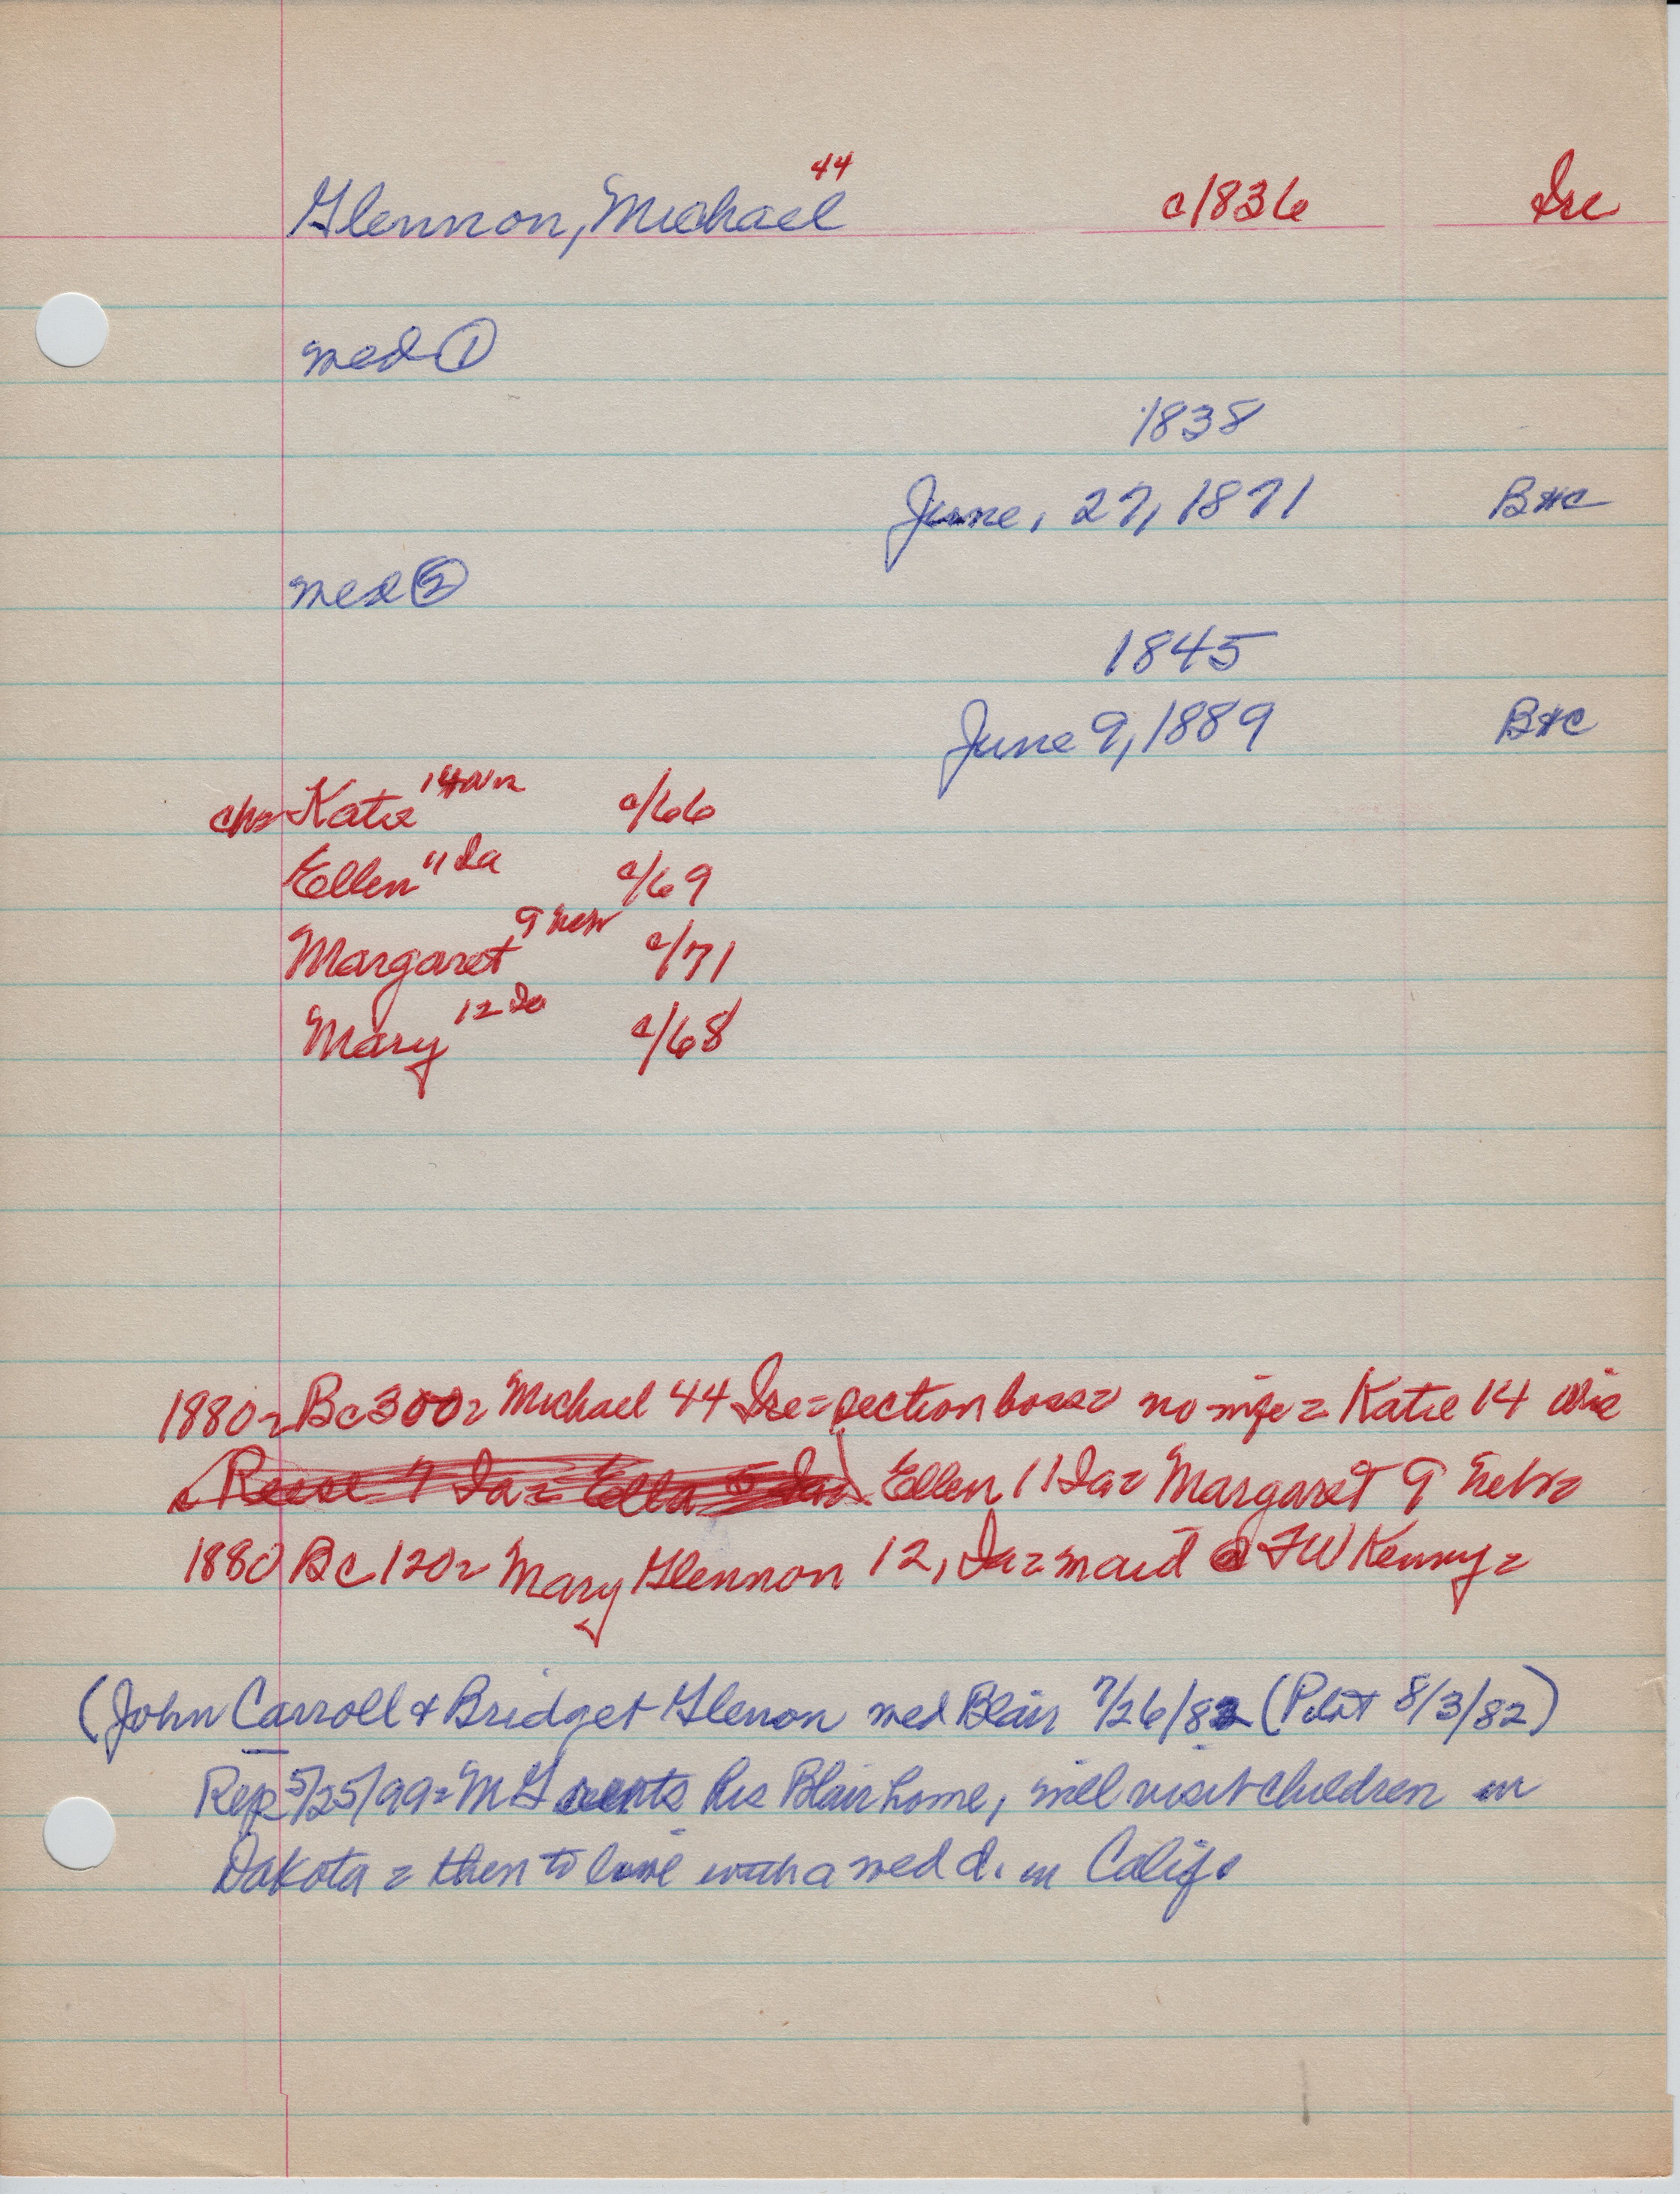 44
Glennon, Michael c/1836 Ire
med ①
1838
June, 27, 1871 B#C
med ②
1845
June 9, 1889 B#C
ch= Katie 14 c/66
Ellen 11 Ia c/69
Margaret 9 Nebr c/71
Mary 12 Ia c/68
1880= Bc300= Michael 44 Ire= section boss= no wife = Katie 14
Reese 7 Ia= Ella 5 Ia= Ellen 11 Ia= Margaret 9 Nebr=
1880 Bc 120= Mary Glennon 12, Ia= maid @ FW Kenny=
(John Carroll & Bridget Glenon med Blair 7/26/82 (Pilot 8/3/82)
Rep 5/25/99= MG rents his Blair home, will visit children in
Dakota = then to live with a med d. in Calif.